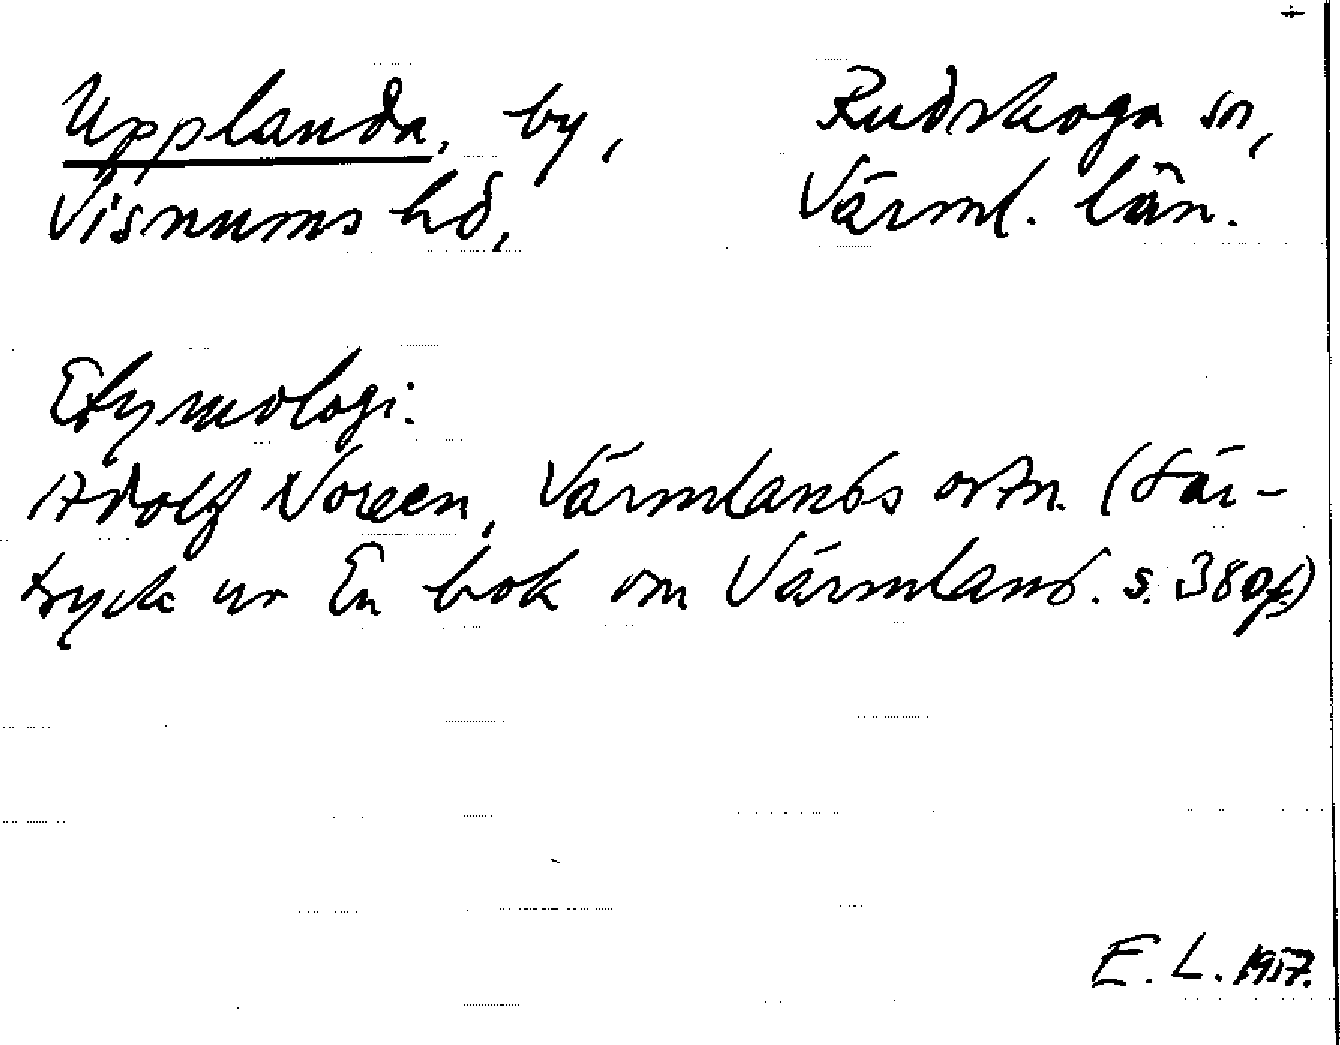 Upplanda, by, Rudskoga sn,
Visnums hd, Värml. län.
Etymologi:
Adolf Noreen, Värmlands ortn. (Sär-
tryck ur En bok om Värmland. s. 380f.)
E. L. 1957.